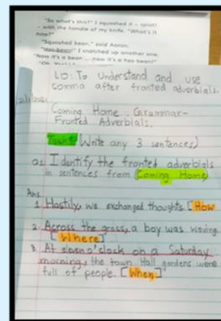 "So what's this?" I squashed it – splat!
– with the handle of my knife. "What's it
now?"
"Squashed bean," said Aaron.
"Has-bean!" I snatched up another one.
"Now it's a bean ... Now it's a has-bean!"
LO: To understand and use
comma after fronted adverbials.
Coming Home. Grammar-
Fronted Adverbials.
Task 1: Write any 3 sentences)
Q: Identify the fronted adverbials
in sentences from (Coming Home)
Ans.
1. Hastily, we exchanged thoughts. [How
2. Across the grass, a boy was
[Where]
3. At eleven o'clock on a Saturday
morning, the town Hall gardens were
full of people. [When]